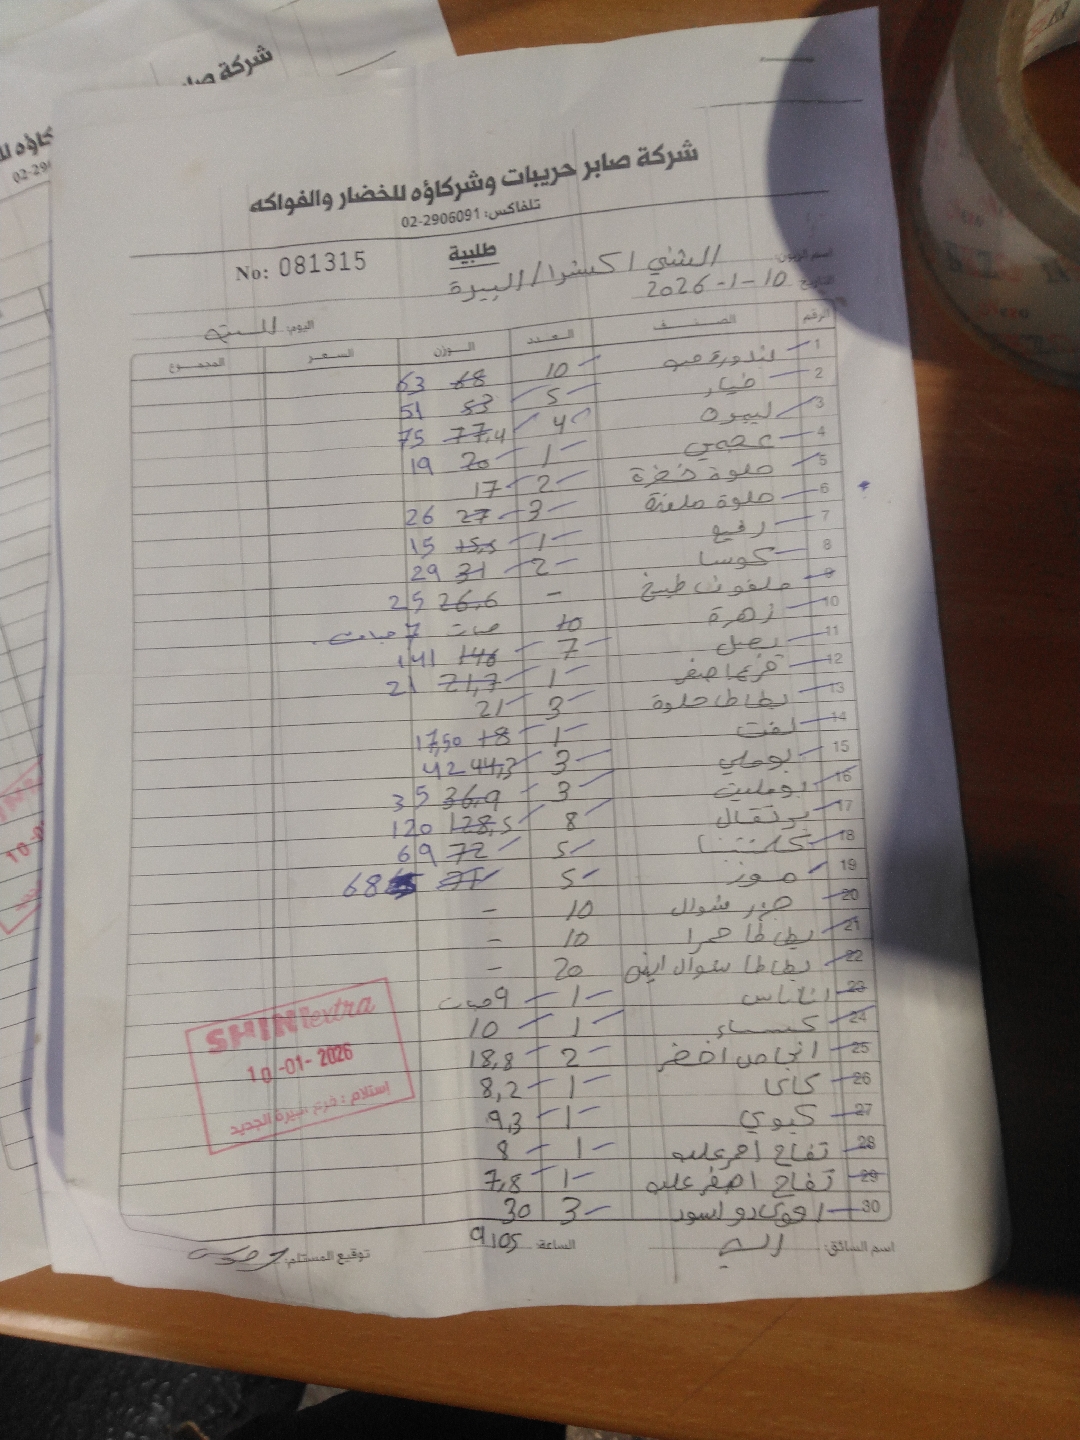 شركة صابر
شركة صابر حريبات وشركاؤه للخضار والفواكه
تلفاكس: 02-2906091
طلبية
No: 081315
اسم الزبون: الشني اكسترا / البيرة
التاريخ 10-1-2026
اليوم: السبت
الرقم الصنف العدد الوزن السعر المجموع
1 بندورة حبه 10 68 63
2 خيار 5 53 51
3 ليبره 4 77,4 75
4 عجمي 1 20 19
5 حلوة خضرة 2 17
6 حلوة ملونة 3 27 26
7 رفيع 1 15,5 15
8 كوسا 2 31 29
9 ملفوف طبيخ - 26,6 25
10 زهرة 10 حبات 7 حبات
11 بصل 7 146 141
12 قرع اصفر 1 21,7 21
13 بطاطا حلوة 3 21
14 لفت 1 18 17,50
15 بوملي 3 44,3 42
16 بومليت 3 36,9 35
17 برتقال 8 128,5 120
18 كلمنتينا 5 72 69
19 موز 5 71 68
20 جزر شوال 10 -
21 بطاطا حمرا 10 -
22 بطاطا شوال ابيض 20 -
23 اناناس 1 9 حبات
24 كستناء 1 10
25 انجاص اخضر 2 18,8
26 كاكا 1 8,2
27 كيوي 1 9,3
28 تفاح احمر علبه 1 8
29 تفاح اصفر علبه 1 7,8
30 افوكادو اسود 3 30
SHINI extra
10-01-2026
استلام: فرع البيرة الجديد
اسم السائق:
الساعة: 9:05
توقيع المستلم: